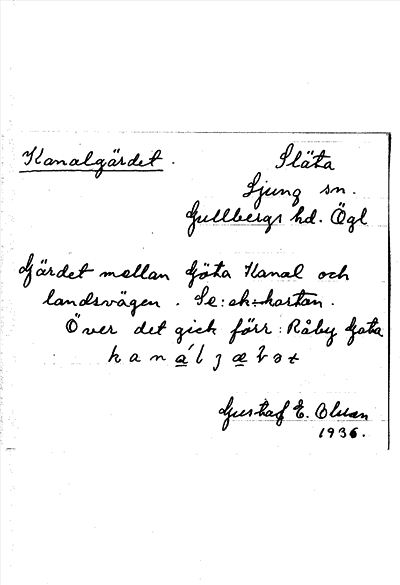 Kanalgärdet. Släta
Ljung sn.
Gullbergs hd. Ögl
Gärdet mellan Göta Kanal och
landsvägen. Se: ek-kartan.
Över det gick förr: Råby Gata
kana̱´lȷæ̱ɾət
Gustaf E. Olsson
1936.